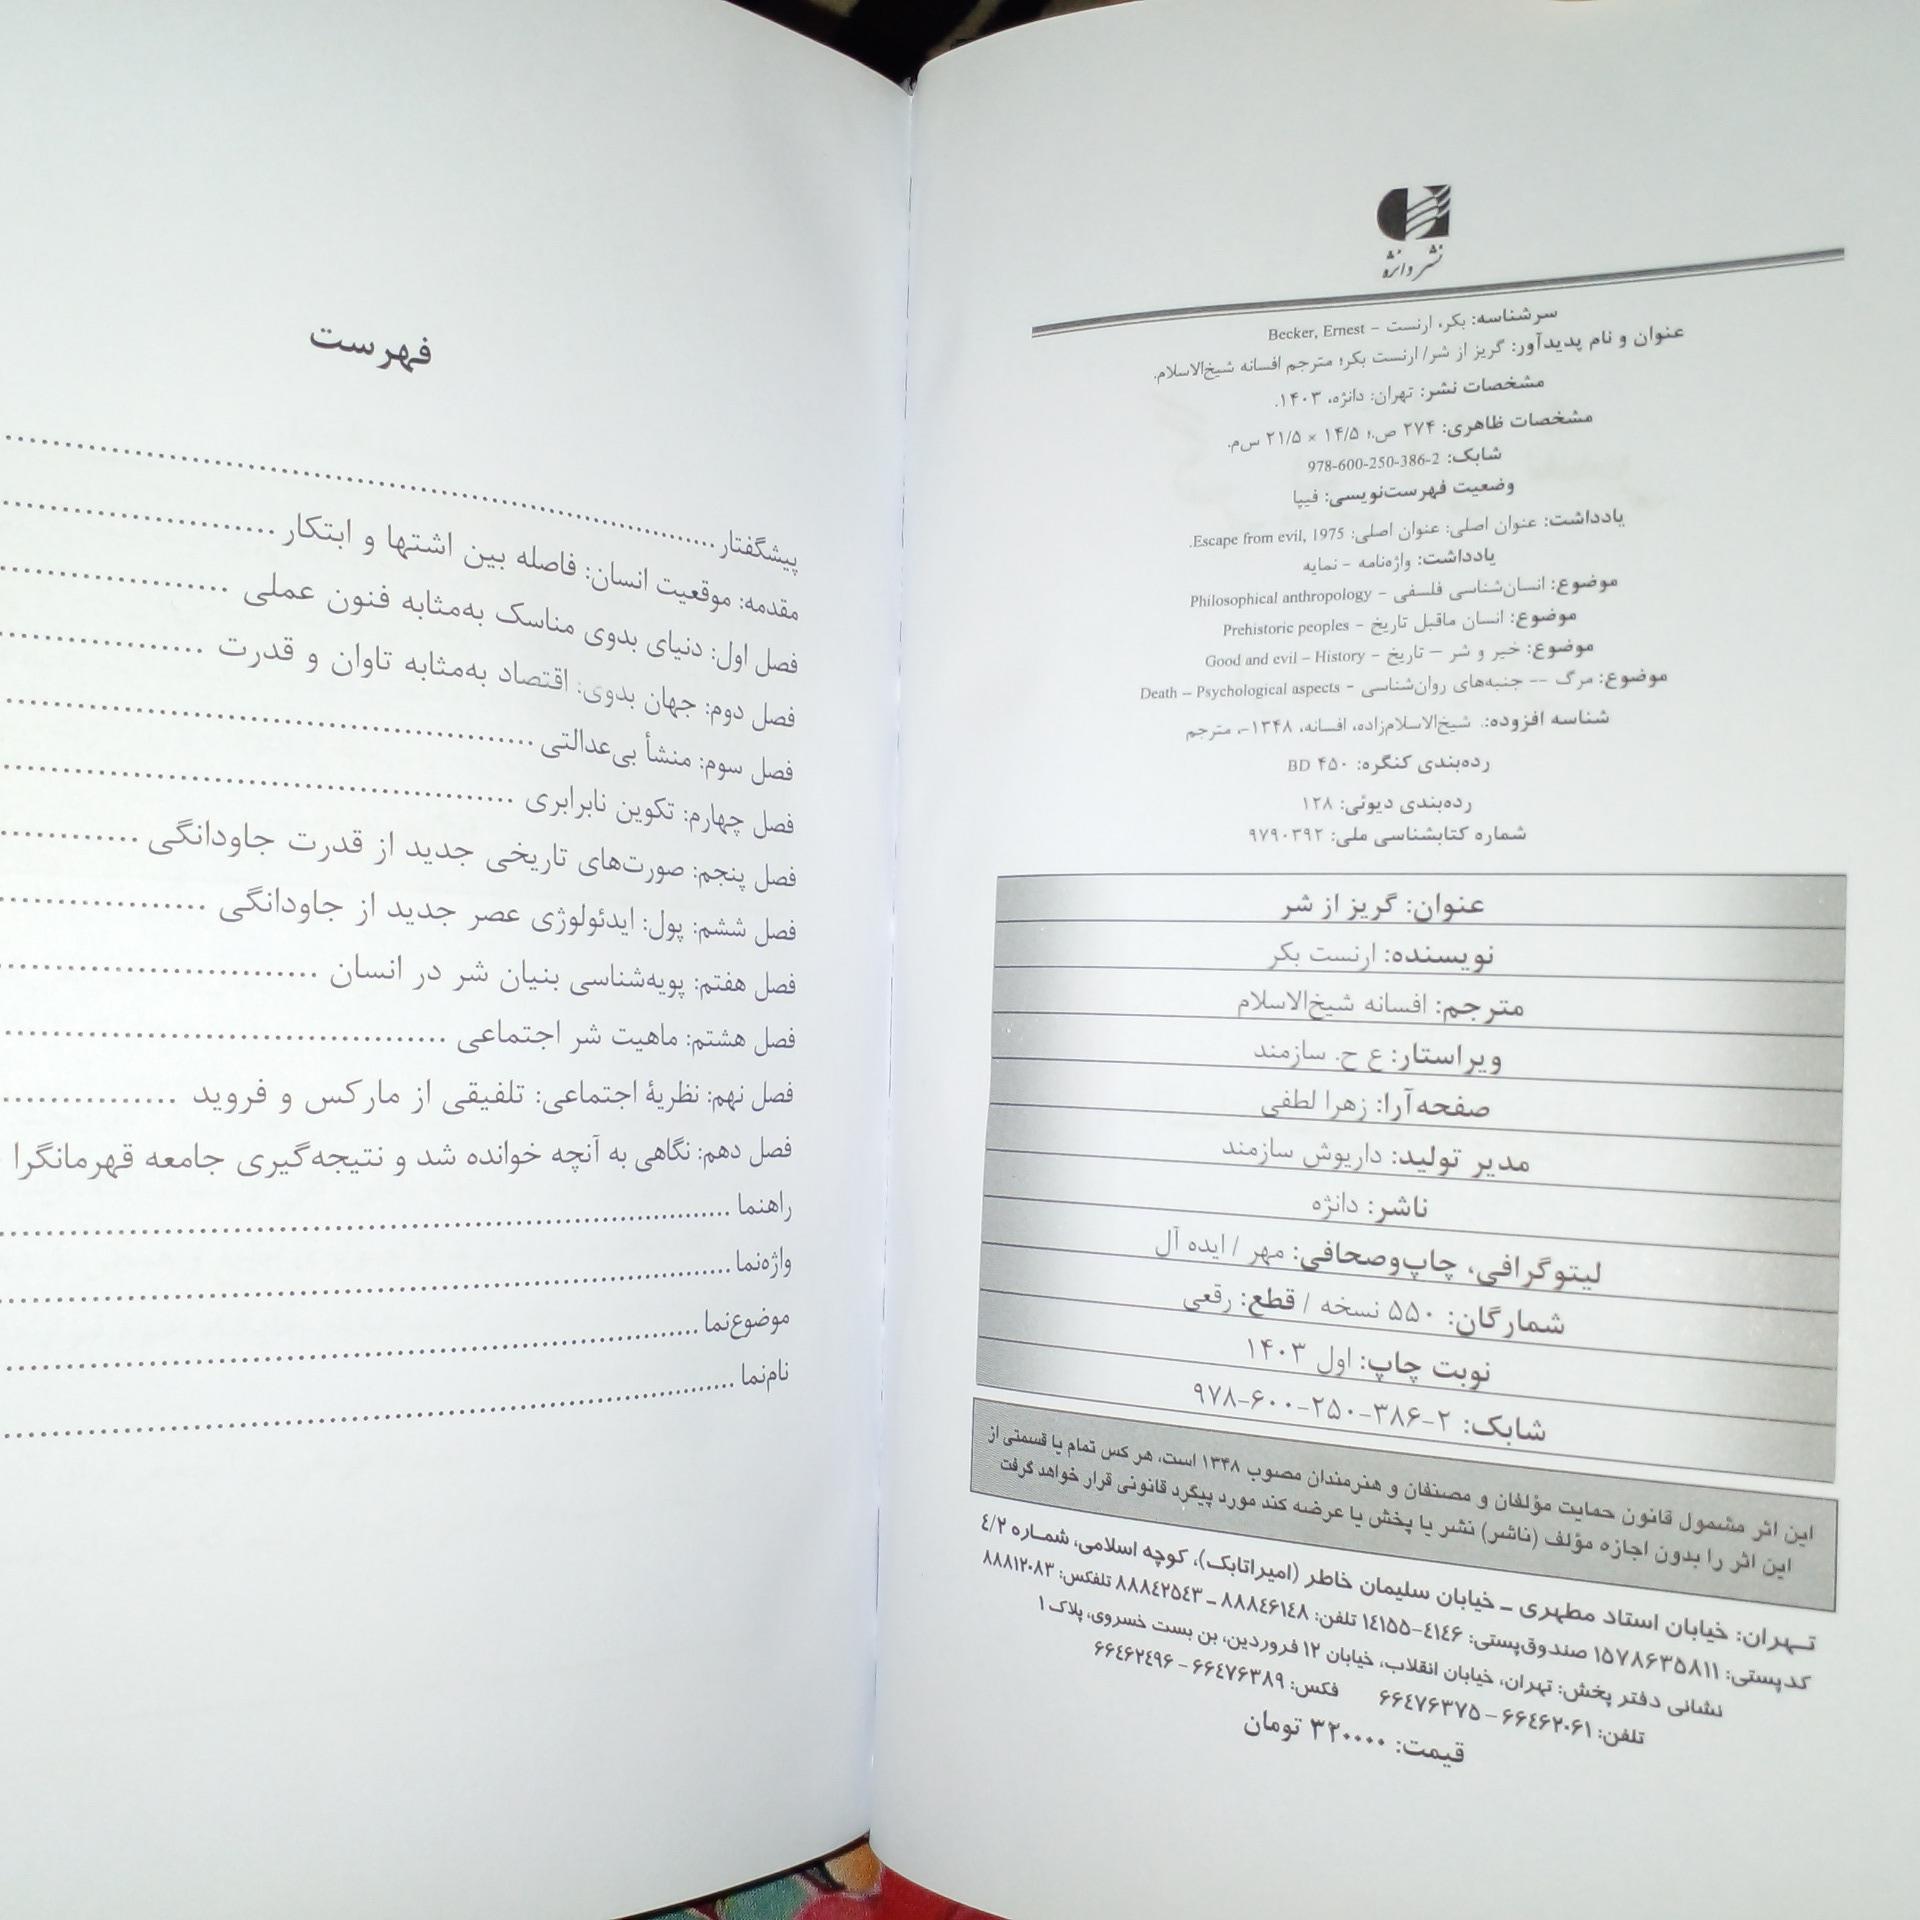 نشر دانژه
سرشناسه: بکر، ارنست - Becker, Ernest
عنوان و نام پدیدآور: گریز از شر/ ارنست بکر؛ مترجم افسانه شیخ‌الاسلام.
مشخصات نشر: تهران: دانژه، ۱۴۰۳.
مشخصات ظاهری: ۲۷۴ ص.؛ ۱۴/۵ × ۲۱/۵ س‌م.
شابک: 978-600-250-386-2
وضعیت فهرست‌نویسی: فیپا
یادداشت: عنوان اصلی: عنوان اصلی: Escape from evil, 1975.
یادداشت: واژه‌نامه - نمایه
موضوع: انسان‌شناسی فلسفی - Philosophical anthropology
موضوع: انسان ماقبل تاریخ - Prehistoric peoples
موضوع: خیر و شر — تاریخ - Good and evil – History
موضوع: مرگ -- جنبه‌های روان‌شناسی - Death – Psychological aspects
شناسه افزوده: شیخ‌الاسلام‌زاده، افسانه، ۱۳۴۸-، مترجم
رده‌بندی کنگره: BD ۴۵۰
رده‌بندی دیوئی: ۱۲۸
شماره کتابشناسی ملی: ۹۷۹۰۳۹۲
عنوان: گریز از شر
نویسنده: ارنست بکر
مترجم: افسانه شیخ‌الاسلام
ویراستار: ع ح. سازمند
صفحه‌آرا: زهرا لطفی
مدیر تولید: داریوش سازمند
ناشر: دانژه
لیتوگرافی، چاپ‌وصحافی: مهر / ایده آل
شمارگان: ۵۵۰ نسخه / قطع: رقعی
نوبت چاپ: اول ۱۴۰۳
شابک: ۲-۳۸۶-۲۵۰-۶۰۰-۹۷۸
این اثر مشمول قانون حمایت مؤلفان و مصنفان و هنرمندان مصوب ۱۳۴۸ است، هر کس تمام یا قسمتی از
این اثر را بدون اجازه مؤلف (ناشر) نشر یا پخش یا عرضه کند مورد پیگرد قانونی قرار خواهد گرفت
تهران: خیابان استاد مطهری ـ خیابان سلیمان خاطر (امیراتابک)، کوچه اسلامی، شماره ٤/٢
کدپستی: ۱۵۷۸۶۳۵۸۱۱ صندوق‌پستی: ۴۱۴۶-۱۴۱۵۵ تلفن: ۸۸۸۴۶۱۴۸ ـ ۸۸۸۴۲۵۴۳ تلفکس: ۸۸۸۱۲۰۸۳
نشانی دفتر پخش: تهران، خیابان انقلاب، خیابان ۱۲ فروردین، بن بست خسروی، پلاک ۱
تلفن: ۶۶۴۶۲۰۶۱ - ۶۶۴۷۶۳۷۵ فکس: ۶۶۴۷۶۳۸۹ - ۶۶۴۶۲۴۹۶
قیمت: ۳۲۰۰۰۰ تومان
فهرست
پیشگفتار
مقدمه: موقعیت انسان: فاصله بین اشتها و ابتکار
فصل اول: دنیای بدوی مناسک به‌مثابه فنون عملی
فصل دوم: جهان بدوی: اقتصاد به‌مثابه تاوان و قدرت
فصل سوم: منشأ بی‌عدالتی
فصل چهارم: تکوین نابرابری
فصل پنجم: صورت‌های تاریخی جدید از قدرت جاودانگی
فصل ششم: پول: ایدئولوژی عصر جدید از جاودانگی
فصل هفتم: پویه‌شناسی بنیان شر در انسان
فصل هشتم: ماهیت شر اجتماعی
فصل نهم: نظریۀ اجتماعی: تلفیقی از مارکس و فروید
فصل دهم: نگاهی به آنچه خوانده شد و نتیجه‌گیری جامعه قهرمانگرا
راهنما
واژه‌نما
موضوع‌نما
نام‌نما